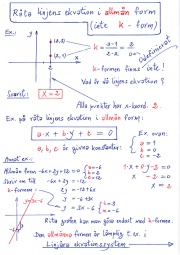 Räta linjens ekvation i allmän form
(inte k-form)
Ex.:
Odefinierat
(2,3)
(2,1)
k = 3-1 / 2-2 = 2 / 0
k-formen finns inte!
Vad är då linjens ekvation?
Svaret: x = 2
Alla punkter har x-koord. 2.
Ex. på räta linjens ekvation i allmän form:
a·x + b·y + c = 0
Ex. ovan:
a, b, c är givna konstanter.
a = 1
b = 0
c = -2
Annat ex.:
Allmän form -6x + 2y + 12 = 0
a = -6
b = 2
c = 12
1·x + 0·y - 2 = 0
x - 2 = 0
x = 2
Skriv om till
k-formen
-6x + 2y + 12 = 0
2y = -12 + 6x
y = -6 + 3x
k = 3
m = -6
Räta grafen kan man göra endast med k-formen.
Den allmänna formen är lämplig t.ex. i
Linjära ekvationssystem